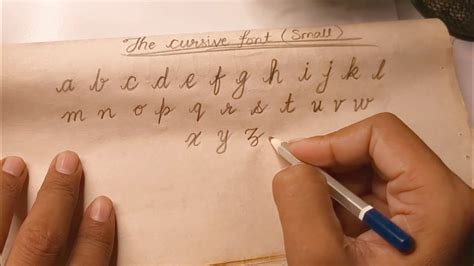 The cursive font (Small)
a b c d e f g h i j k l
m n o p q r s t u v w
x y z